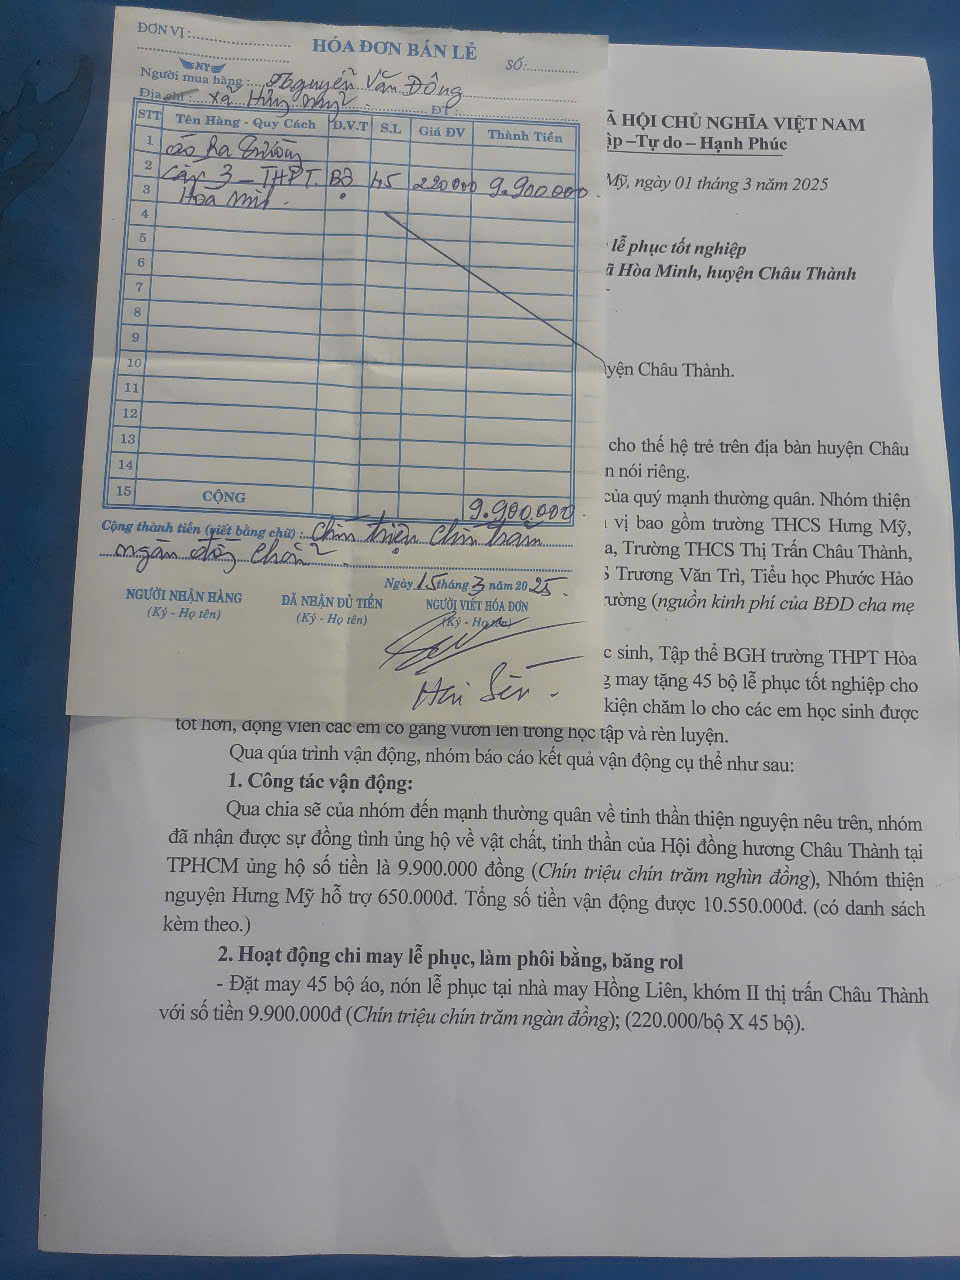 ĐƠN VỊ :
HÓA ĐƠN BÁN LẺ
SỐ:
NY
Người mua hàng : Nguyễn Văn Đông
Địa chỉ : xã Hưng Mỹ ĐT :
STT Tên Hàng - Quy Cách Đ.V.T S.L Giá ĐV Thành Tiền
1 áo ra trường
2 cấp 3 - THPT. Bộ 45 220000 9.900.000.
3 Hòa Minh.
4
5
6
7
8
9
10
11
12
13
14
15 CỘNG 9.900.000
Cộng thành tiền (viết bằng chữ) : Chín triệu chín trăm
ngàn đồng chẵn
Ngày 15 tháng 3 năm 2025.
NGƯỜI NHẬN HÀNG ĐÃ NHẬN ĐỦ TIỀN NGƯỜI VIẾT HÓA ĐƠN
(Ký - Họ tên) (Ký - Họ tên) (Ký - Họ tên)
Ã HỘI CHỦ NGHĨA VIỆT NAM
ập –Tự do – Hạnh Phúc
Mỹ, ngày 01 tháng 3 năm 2025
lễ phục tốt nghiệp
ã Hòa Minh, huyện Châu Thành
yện Châu Thành.
cho thế hệ trẻ trên địa bàn huyện Châu
n nói riêng.
của quý mạnh thường quân. Nhóm thiện
vị bao gồm trường THCS Hưng Mỹ,
a, Trường THCS Thị Trấn Châu Thành,
S Trương Văn Trì, Tiểu học Phước Hảo
rường (nguồn kinh phí của BĐD cha mẹ
c sinh, Tập thể BGH trường THPT Hòa
g may tặng 45 bộ lễ phục tốt nghiệp cho
kiện chăm lo cho các em học sinh được
tốt hơn, động viên các em cố gắng vươn lên trong học tập và rèn luyện.
Qua qúa trình vận động, nhóm báo cáo kết quả vận động cụ thể như sau:
1. Công tác vận động:
Qua chia sẽ của nhóm đến mạnh thường quân về tinh thần thiện nguyện nêu trên, nhóm
đã nhận được sự đồng tình ủng hộ về vật chất, tinh thần của Hội đồng hương Châu Thành tại
TPHCM ủng hộ số tiền là 9.900.000 đồng (Chín triệu chín trăm nghìn đồng), Nhóm thiện
nguyện Hưng Mỹ hỗ trợ 650.000đ. Tổng số tiền vận động được 10.550.000đ. (có danh sách
kèm theo.)
2. Hoạt động chi may lễ phục, làm phôi bằng, băng rol
- Đặt may 45 bộ áo, nón lễ phục tại nhà may Hồng Liên, khóm II thị trấn Châu Thành
với số tiền 9.900.000đ (Chín triệu chín trăm ngàn đồng); (220.000/bộ X 45 bộ).